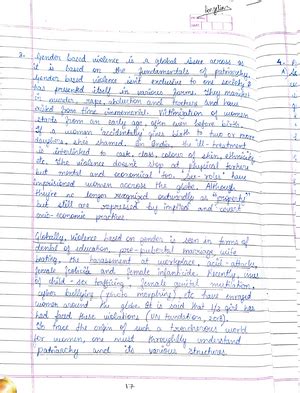 3. Gender based violence is a global issue across as
it is based on the fundamentals of patriarchy.
Gender based violence isn't exclusive to one society &
has presented itself in various forms. They manifest
in murder, rape, abduction and torture and have
existed from time immemorial. Victimization of women
starts from an early age, often even before birth.
If a woman 'accidentally' gives birth to two or more
daughters, she's shamed. In India, the ill-treatment
is involved to cast, class, colour of skin, ethnicity
etc. The violence doesn't stop at physical sphere
but mental and economical too. 'Sex-roles' have
imprisoned women across the globe. Although
they're no longer recognized outwardly as "property"
but still are repressed by implicit and covert
socio-economic practices.
Globally, violence based on gender is seen in forms of
denial of education, pre-pubertal marriage, wife
beating, the harassment at workplace, acid-attacks,
female foeticide and female infanticide. Recently, cases
of child-sex trafficing, female genital mutilation,
cyber bullying (photo morphing) etc have emerged
women around the globe. It is said that 1/3 girls has
had faced these violations (UN Foundation, 2013).
To trace the origin of such a treacherous world
for women, one must throughlly understand
Patriarchy and its various structures.
17
4.